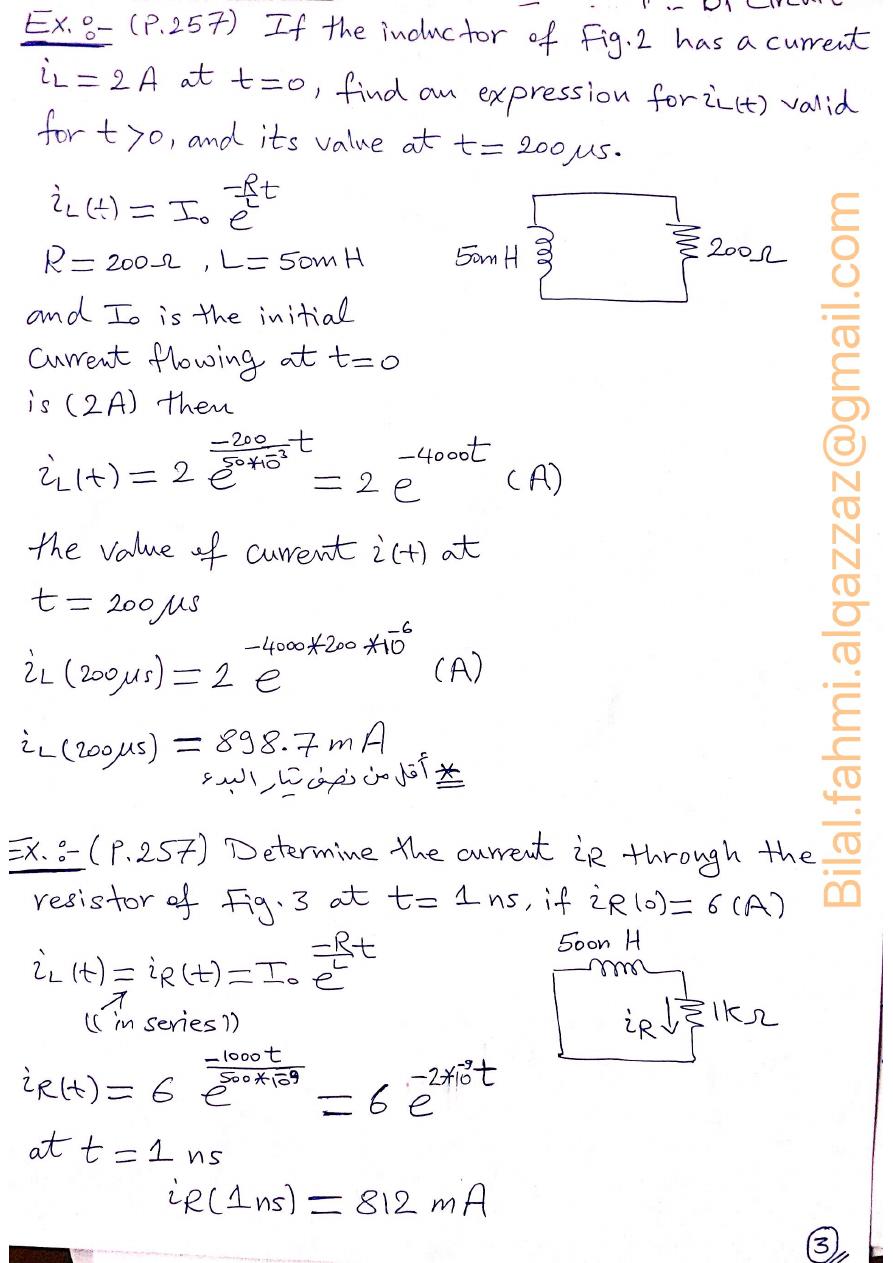 Ex. :- (P.257) If the inductor of Fig.2 has a current
iL = 2 A at t=0, find an expression for iL(t) valid
for t>0, and its value at t = 200 μs.
iL(t) = I₀ e^(-R/L t)
R = 200Ω , L = 50mH
50mH
200Ω
and I₀ is the initial
current flowing at t=0
is (2A) then
iL(t) = 2 e^(-200/(50*10⁻³) t) = 2 e^(-4000t) (A)
the value of current i(t) at
t = 200 μs
iL(200μs) = 2 e^(-4000*200*10⁻⁶) (A)
iL(200μs) = 898.7 mA
* أقل من نصف تيار البدء
Ex. :- (P.257) Determine the current iR through the
resistor of Fig.3 at t= 1 ns, if iR(0)= 6 (A)
iL(t) = iR(t) = I₀ e^(-R/L t)
((in series))
500n H
iR
1kΩ
iR(t) = 6 e^(-1000t/(500*10⁻⁹)) = 6 e^(-2*10⁻⁹t)
at t = 1 ns
iR(1ns) = 812 mA
3
Bilal.fahmi.alqazzaz@gmail.com